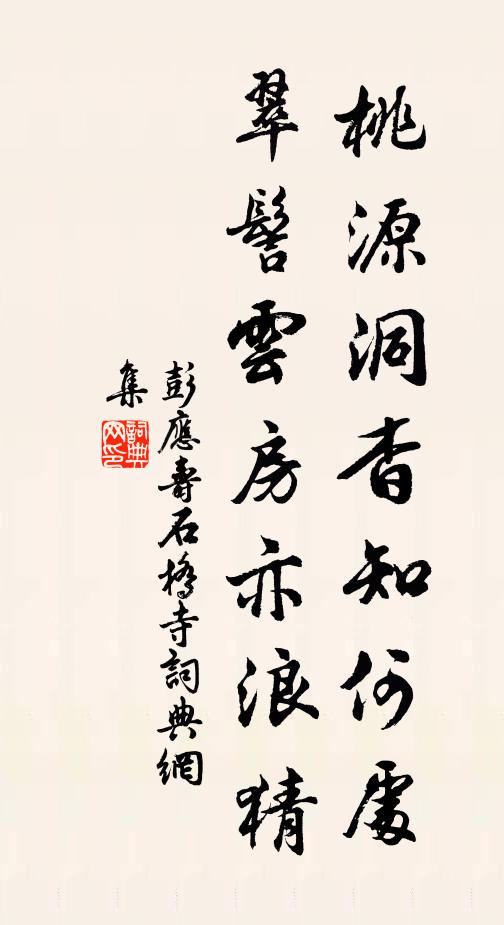 桃源洞杳知何處
翠髻雲房亦浪猜
彭應壽石橋寺詞典網
集
詞典
网印